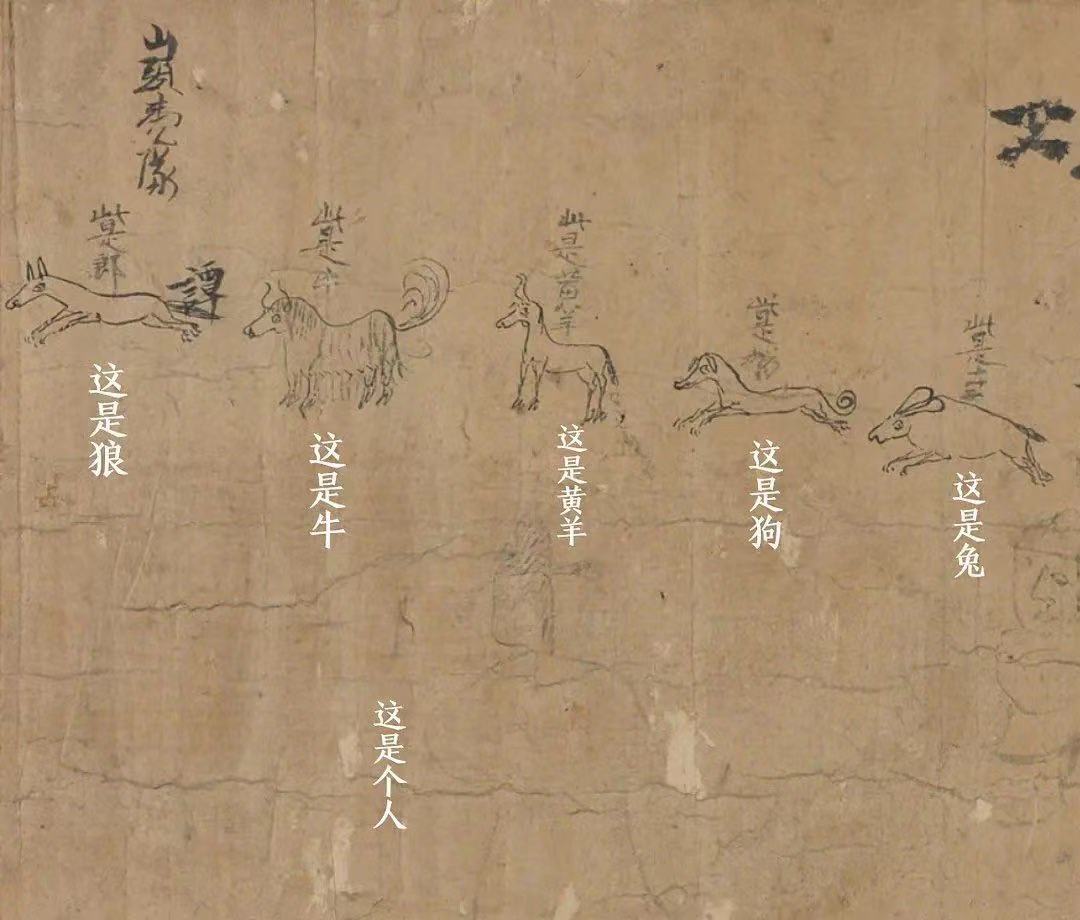 山頭
隊
此是郎
譚
此是牛
此是黃羊
此是狗
此是
这是狼
这是牛
这是黄羊
这是狗
这是兔
这是个人